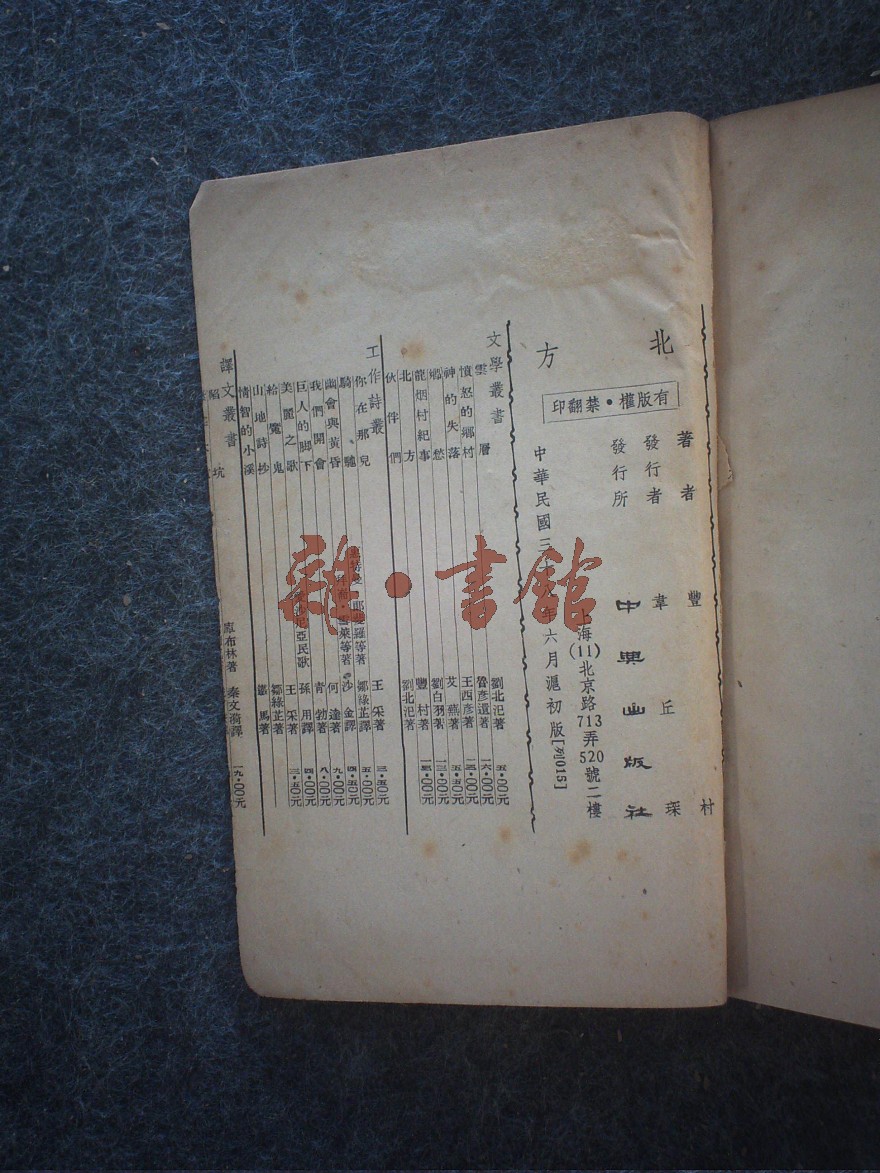 北方
有版權・禁翻印
著者 豐村
發行者 韋丘琛
發行所 中興出版社
上海(11)北京路713弄520號二樓
中華民國三十八年六月滬初版[列015]
文學叢書
雲層 劉北汜著 五・〇〇元
憤怒的鄉村 魯彥遺著 一六・〇〇元
神的失落 王西彥著 一二・〇〇元
鄉愁 艾蕪著 五・五〇元
龍烟村紀事 劉白羽著 一三・〇〇元
北方 豐村著 一三・〇〇元
伙伴們 劉北汜著
工作詩叢
你在那兒 王采著 三・五〇元
騎馳 鄒綠芷譯 五・〇〇元
幽會與黃昏 雪萊等著 沙金譯 四・五〇元
我們開會 何達著 九・〇〇元
巨人的脚下 青勃著 八・〇〇元
美麗之歌 愛沙尼亞民歌 孫用譯 四・〇〇元
給夜鬼 王采著 三・五〇元
山地詩抄 鄒綠芷著
情智的小溪 蕭馬著
譯文叢書
陷坑 庫布林著 秦文漪譯 一九・〇〇元
雜・書館